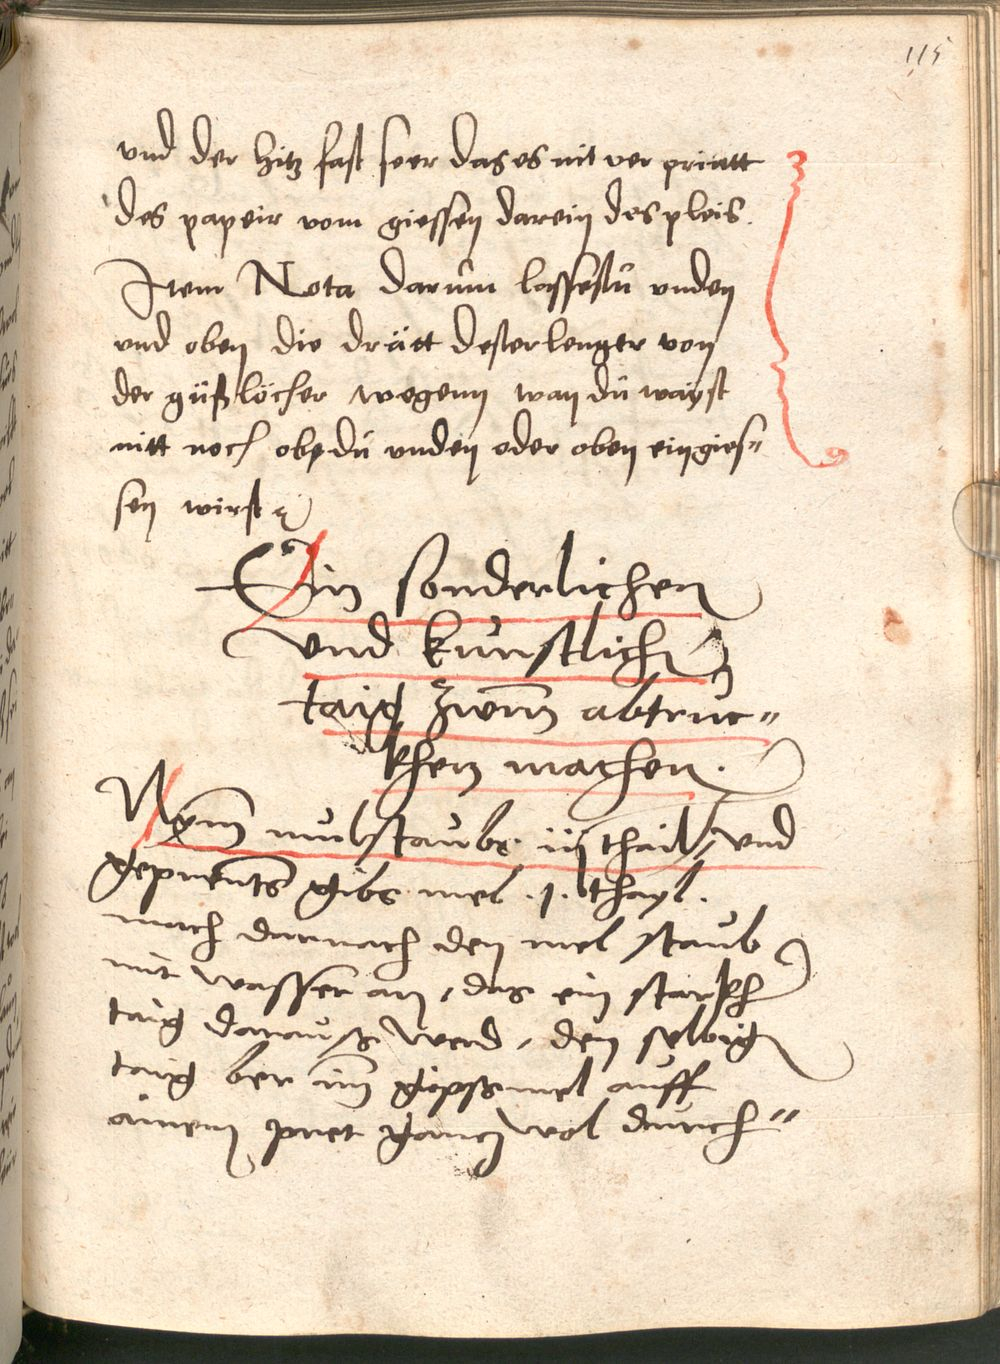 115
vnd der hitz fast seer das es nit ver printt
des papeir vom giessen darein des pleis.
Item Nota darum lassestu vnden
vnd oben die drätt dester lenger von
der güßlöcher wegenn wan du wayst
nitt noch ob du vnden oder oben ein gies=
sen wirst
Ein sonderlichen
vnd kunstlichen
taig zum abtruc=
khen machen.
Nym mulstaubs iij thail, vnd
geprents gibs mel .1. thayl.
mach darnach den mel staub
mit wasser an, das ein starkh
taig daraus werd, den selbig
taig ber im gipsmel auff
ainem pret gancz wol durch=